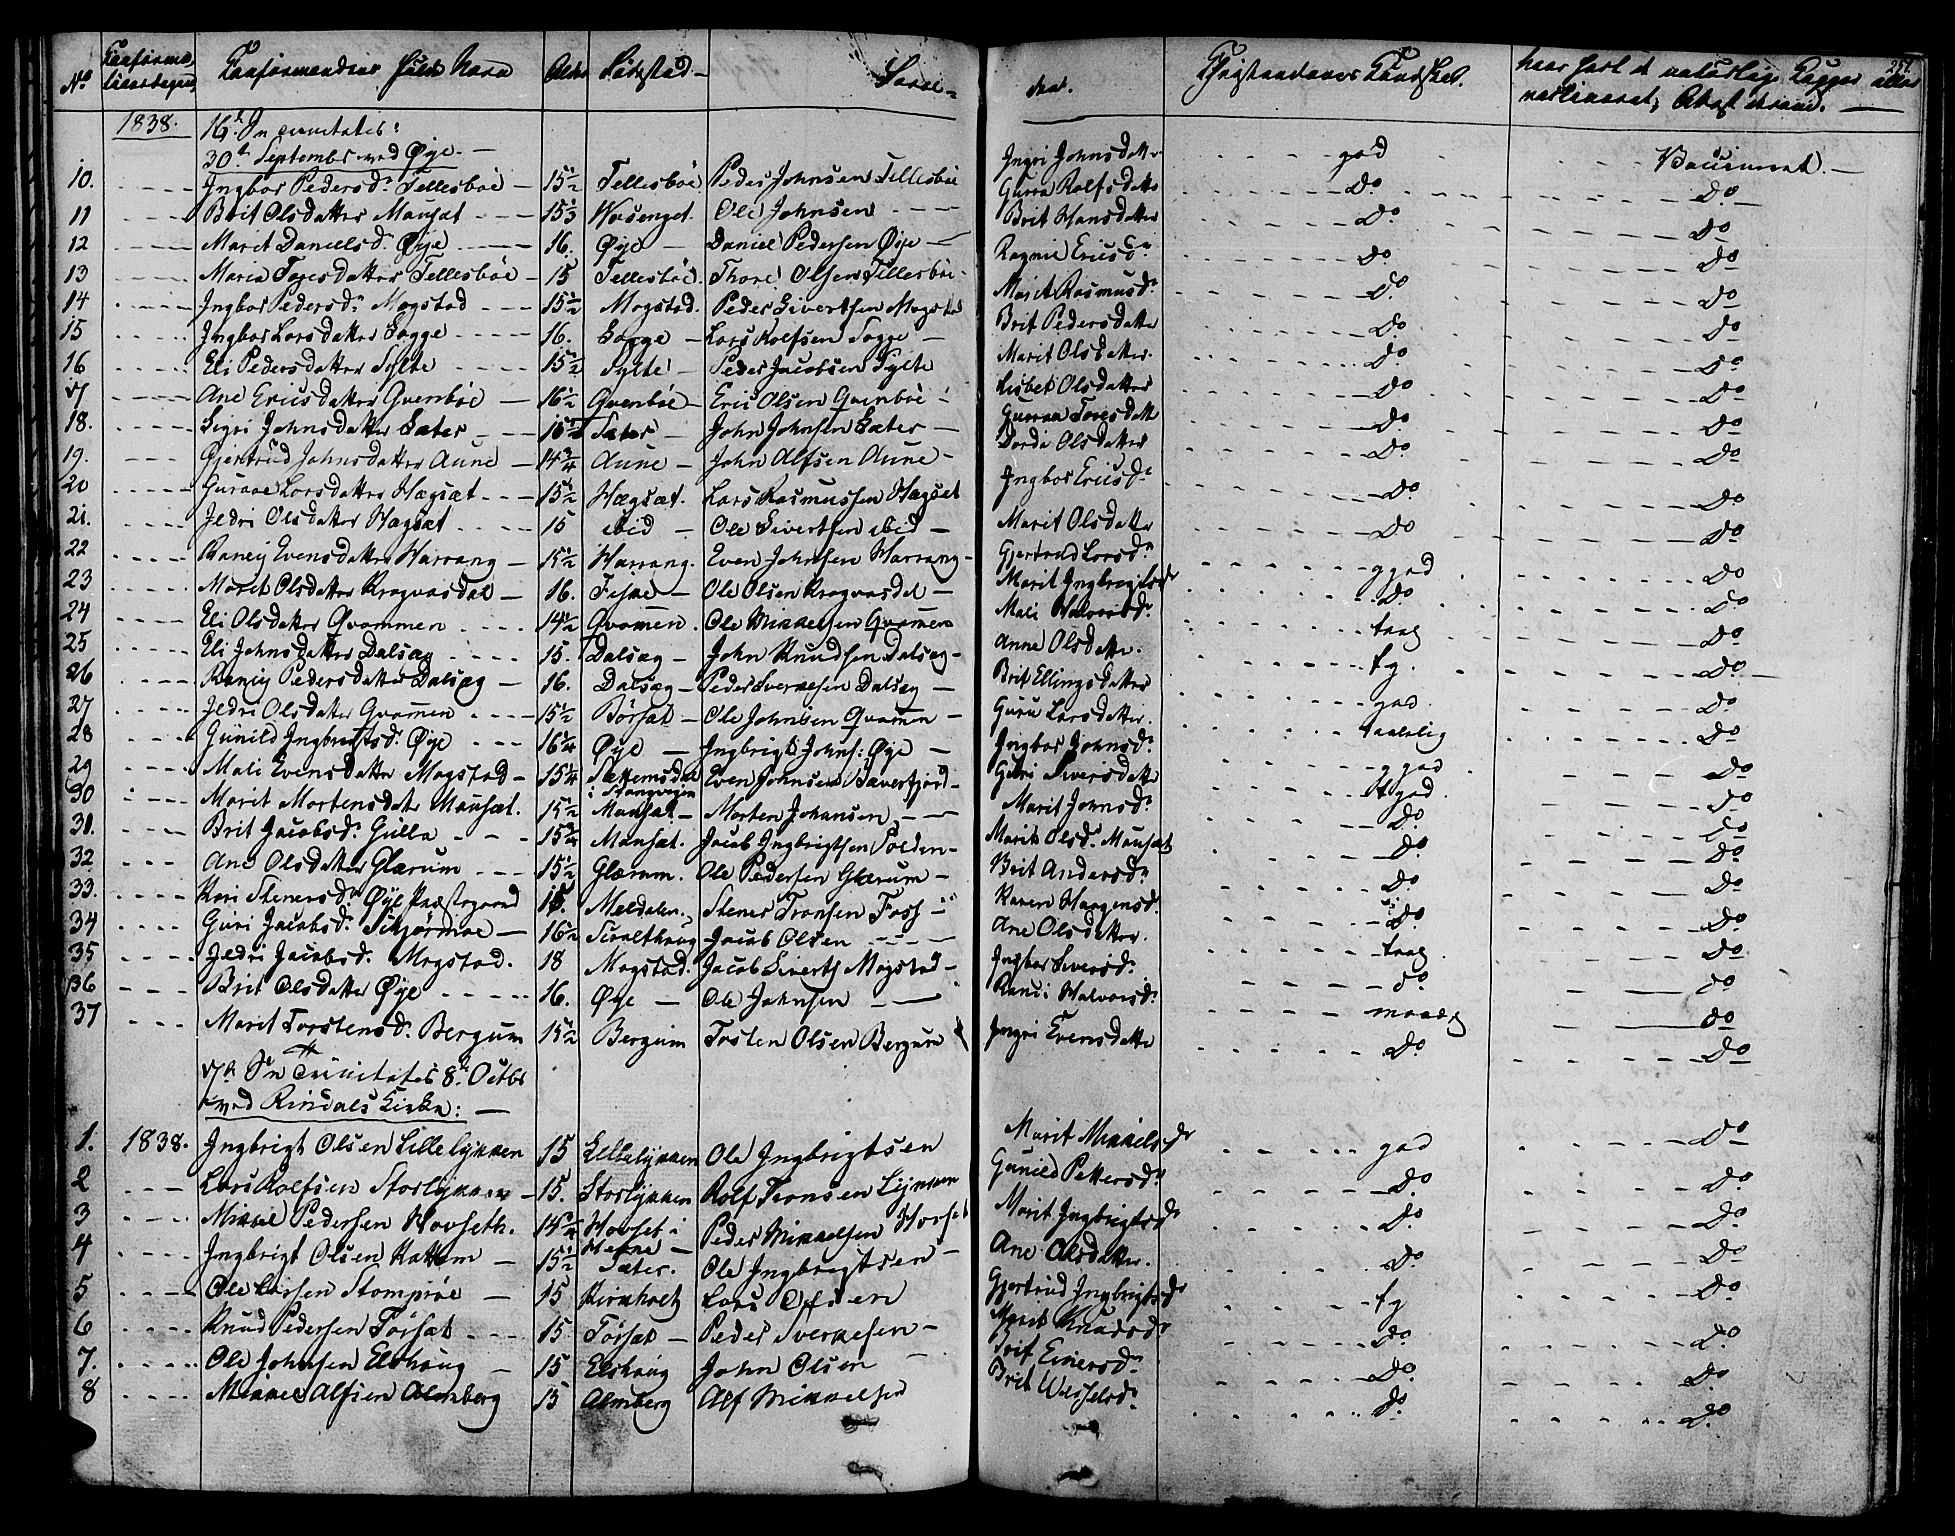 No Confirmationsdagen Confirmandens fulde Navn Alder Fødested Foræl- dre. Christendoms Kundskab. har havt de naturlige Kopper eller 251.
vaccineret;
1838. 16d Sn Trinitates:
30t Septembr ved Øye. —
10. Ingbor Pedersd. Tellesböe — 15½ Tellesböe Peder Johnsen Tellesböe Ingri Johnsdatter god Vaccineret. —
11 Brit Olsdatter Mausæt 15½ Ole Johnsen Guroe Rolfsdatter Do Do
12 Marit Danielsd. Øye 16. Øye — Daniel Pedersen Øye — Brit Hansdatter Do Do
13 Maria Toresdatter Tellesböe — 15 Tellesböe Thore Olsen Tellesböe Ragnie Ericsd. Do Do
14 Ingbor Pedersd. Mogstad 15½ Mogstad. Peder Sivertsen Mogstad Marit Rasmusd. Do Do
15 Ingbor Larsdatter Sogge 16. Sogge — Lars Rolfsen Sogge — Brit Pedersdatter Do Do
16 Eli Pedersdatter Sylte 15½ Sylte — Peder Jacobsen Sylte Marit Olsdatter. Do Do
17 Ane Ericsdatter Qvenböe — 16½ Qvenböe — Eric Olsen Qvenböe Lisbet Olsdatter Do Do
18. Sigri Johnsdatter Sæter 15½ Sæter — John Johnsen Sæter — Guroe Toresdatt Do Do
19. Gjertrud Johnsdatter Aune — 14¾ Aune — John Alfsen Aune — Dordi Olsdatter Do Do
20 Guroe Larsdatter Hægsæt 15½ Hægsæt. Lars Rasmussen Hægsæt Ingbor Ericsd. Do Do
21. Jedri Olsdatter Hægsæt 15 ibid — Ole Sivertsen ibid — Marit Olsdatter Do Do
22 Raneig Evensdatter Harrang — 15½ Harrang. Even Johnsen Harrang — Gjertrud Larsd. ggod Do
23 Marit Olsdatter Krogvasdal — 16. Fiske — Ole Olsen Krogvasdal — Marit Ingbrigtsdr Do Do
24 Eli Olsdatter Qvammen 14½ Qvamen. Ole Mikkelsen Qvamen Mali Halvorsd. taag Do
25 Eli Johnsdatter Dalsæg 15. Dalsæg — John Knudsen Dalsæg — Anne Olsdatter. tg. Do
26 Raneig Pedersdatter Dalsæg — 16. Dalsæg — Peder Sverkesen Dalsæg — Brit Ellingsdatter god Do
27 Jedri Olsdatter Qvamen 15½ Börsæt — Ole Johnsen Qvamen — Guru Larsdatter. taalelig Do
28 Gunild Ingbrigtsd. Øye 16¼ Øye — Ingbrigt Johns: Øye — Ingbor Johnsd. ggod Do
29 Mali Evensdatter Mogstad — 15¼ Sættemsdal i Stangvigen Even Johnsen Bæverfjord — Guri Siversdatter tgod. Do
30 Marit Mortensdatr Mausæt. 15½ Mausæt — Morten Johansen Marit Johnsd. Do Do
31. Brit Jacobsd. Gulla 15¾ Mausæt. Jacob Ingbrigtsen Polden — Marit Olsd. Mausæt Do Do
32. Ane Olsdatter Glærum 15½ Glærum. Ole Pedersen Glærum — Brit Andersd. Do Do
33. Kari Stenersd. Øye Præstegaard 15. Meldalen. Stener Tronsen Foss Karen Haagensd. Do Do
34 Guri Jacobsd. 16½ Jacob Olsen Ane Olsdatter. taag Do
35 Jedri Jacobsd. Mogstad. 18 Mogstad. Jacob Siverts Mogstad — Ingbor Siversd. do do
36 Brit Olsdatter Øye 16. Øye — Ole Johnsen Ranei Halvorsd. maadg do
37 Marit Torstensd. Bergum 15½ Bergum Tosten Olsen Bergum Ingri Evensdatter Do Do
17d Sn Trinitates 8d Octbr
ved Rindals Kirke: —
1. 1838. Ingbrigt Olsen Lillelykken 15 Lillelykken Ole Ingbrigtsen Marit Mikkelsdr god Do
2 Lars Rolfsen Storlykken — 15. Storlykken Rolf Tronsen Lykken Gunild Pettersd. Do Do
3 Mikkel Pedersen Hovseth. 14¾ Hovset i Peder Mikkelsen Hovset Marit Ingbrigtsdr Do Do
4 Ingbrigt Olsen Kattem — 15½ Sæter. Ole Ingbrigtsen — Ane Olsdatter. Do Do
5 Ole Larsen Stomprøe — 15 Lars Olsen Gjertrud Ingbrigtsdr tg Do
6 Knud Pedersen Törsæt 15 Törsæt — Peder Sverkesen — Marit Knudsd. Do Do
7. Ole Johnsen Elshaug — 15 Elshaug John Olsen Brit Einersd. Do Do
8 Mikkel Alfsen Almberg 15 Almberg Alf Mikkelsen Brit Wesselsd. do Do